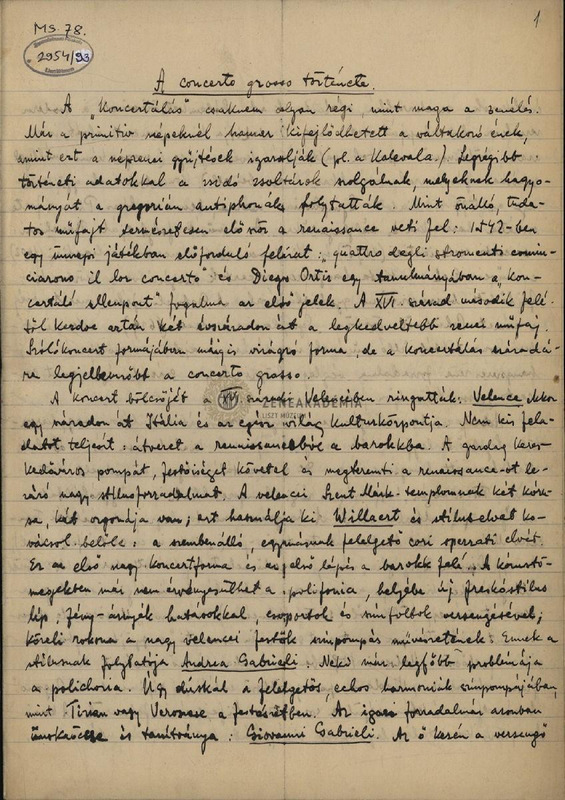 Ms. 78.
1
2954/93
A concerto grosso története.
A „Koncertálás" csaknem olyan régi, mint maga a zenélés.
Már a primitív népeknél hamar kifejlődhetett a váltakozó ének,
amint ezt a néprajzi gyüjtések igazolják (pl. a Kalevala.) Legrégibb
történeti adatokkal a zsidó zsoltárok szolgálnak, melyeknek hagyo-
mányát a gregorián antiphonák folytatták. Mint önálló, tuda-
tos műfajt természetesen először a renaissance veti fel: 1542-ben
egy ünnepi játékban előforduló felirat: „quattro degli stromenti comin-
ciarono il lor concerto" és Diego Ortis egy tanulmányában a „kon-
certáló ellenpont" fogalma az első jelek. A XVI. század második felé-
től kezdve aztán két évszázadon át a legkedveltebb zenei műfaj.
Szólókoncert formájában máig is virágzó forma, de a koncertálás századá-
ra legjellemzőbb a concerto grosso.
A koncert bölcsőjét a XVI. századi Velencében ringatták. Velence ekkor
egy századon át Itália és az egész világ kulturközpontja. Nem kis fela-
datot teljesít: átvezet a renaissanceból a barokkba. A gazdag keres-
kedőváros pompát, festőiséget követel és megteremti a renaissance-ot le-
záró nagy stílusforradalmat. A velencei Szent Márk-templomnak két kóru-
sa, két orgonája van; ezt használja ki Willaert és stíluselvet ko-
vácsol belőle: a szembenálló, egymásnak felelgető cori spezzati elvét.
Ez az első nagy koncertforma és az első lépés a barokk felé. A kórustö-
megekben már nem érvényesülhet a polifonia, helyébe új freskóstílus
lép, fény-árnyék hatásokkal, csoportok és színfoltok versengésével;
közeli rokona a nagy velencei festők színpompás művészetének. Ennek a
stílusnak folytatója Andrea Gabrieli. Neki már legfőbb problémája
a polichoria. Úgy dúskál a felelgetős, echos harmóniák színpompájában,
mint Tizian vagy Veronese a festészetben. Az igazi forradalmár azonban
unokaöccse és tanítványa: Giovanni Gabrieli. Az ő kezén a versengő
ZENEAKADÉMIA
LISZT MÚZEUM